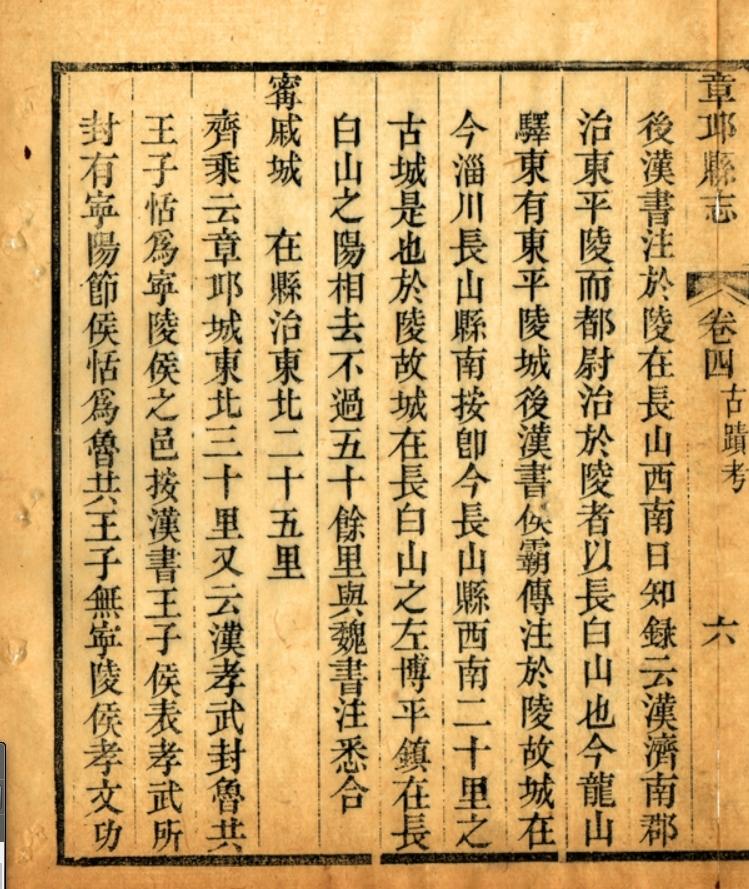 章邱縣志
卷四
古蹟考
六
後漢書注於陵在長山西南日知錄云漢濟南郡
治東平陵而都尉治於陵者以長白山也今龍山
驛東有東平陵城後漢書侯霸傳注於陵故城在
今淄川長山縣南按卽今長山縣西南二十里之
古城是也於陵故城在長白山之左博平鎮在長
白山之陽相去不過五十餘里與魏書注悉合
甯戚城　在縣治東北二十五里
齊乘云章邱城東北三十里又云漢孝武封魯共
王子恬爲寧陵侯之邑按漢書王子侯表孝武所
封有寧陽節侯恬爲魯共王子無寧陵侯孝文功